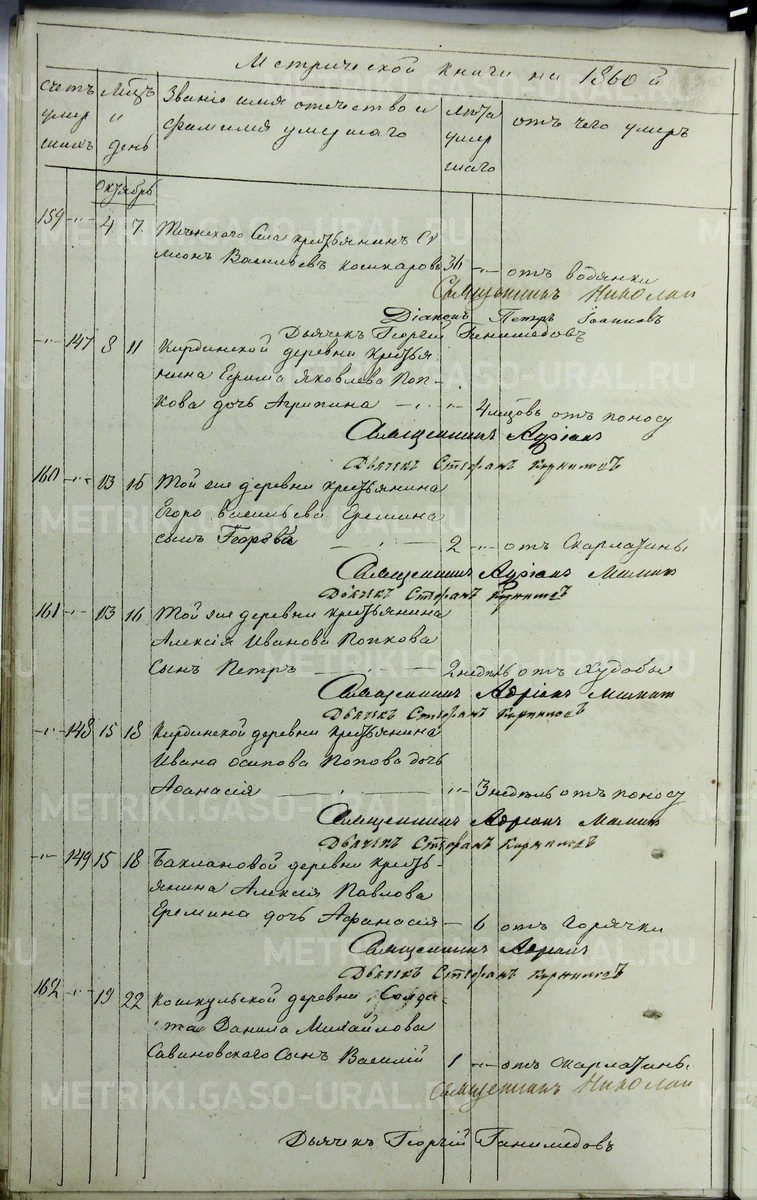 Метрической книги на 1860 й
Счетъ умер шихъ
Мѣцъ и день
Званіе имя отечество и фамилия умершаго
Лѣта умер шаго
отъ чего умеръ
Октябрь
159 -"- 4 7 Теченскаго Села крестьянинъ Си
меонъ Васильевъ Кошкаровъ 36 -"- отъ водянки
Священникъ Николай
Діаконъ Петръ Іоанновъ
Дьячекъ Георгій Ганимедовъ
-"- 147 8 11 Кирдинской деревни крестья
нина Ефима Яковлева Поп-
кова дочь Агрипина -"- 4 мѣсцовъ отъ поносу
Священникъ Адріанъ
Дьячекъ Стефанъ
160 -"- 13 16 Той же деревни крестьянина
Егора Васильева Еремина
сынъ Георгій 2 -"- отъ Скарлатины
Священникъ Адріанъ
Дьячекъ Стефанъ
161 -"- 13 16 Той же деревни крестьянина
Алексія Иванова Попкова
Сынъ Петръ 2 недѣль отъ Худобы
Священникъ Адріанъ
Дьячекъ Стефанъ
-"- 148 15 18 Кирдинской деревни крестьянина
Ивана Осипова Попова дочь
Афанасія -"- 3 недѣль отъ поносу
Священникъ Адріанъ
Дьячекъ Стефанъ
-"- 149 15 18 Баклановой деревни кресть-
янина Алексія Павлова
Еремина дочь Афанасія - 6 отъ Горячки
Священникъ Адріанъ
Дьячекъ Стефанъ
162 -"- 19 22 Кошкульской деревни, Солда-
та Данила Михайлова
Савиновскаго Сынъ Василій 1 -"- отъ Скарлатины
Священникъ Николай
Дьячекъ Георгій Ганимедовъ
METRIKI.GASO-URAL.RU